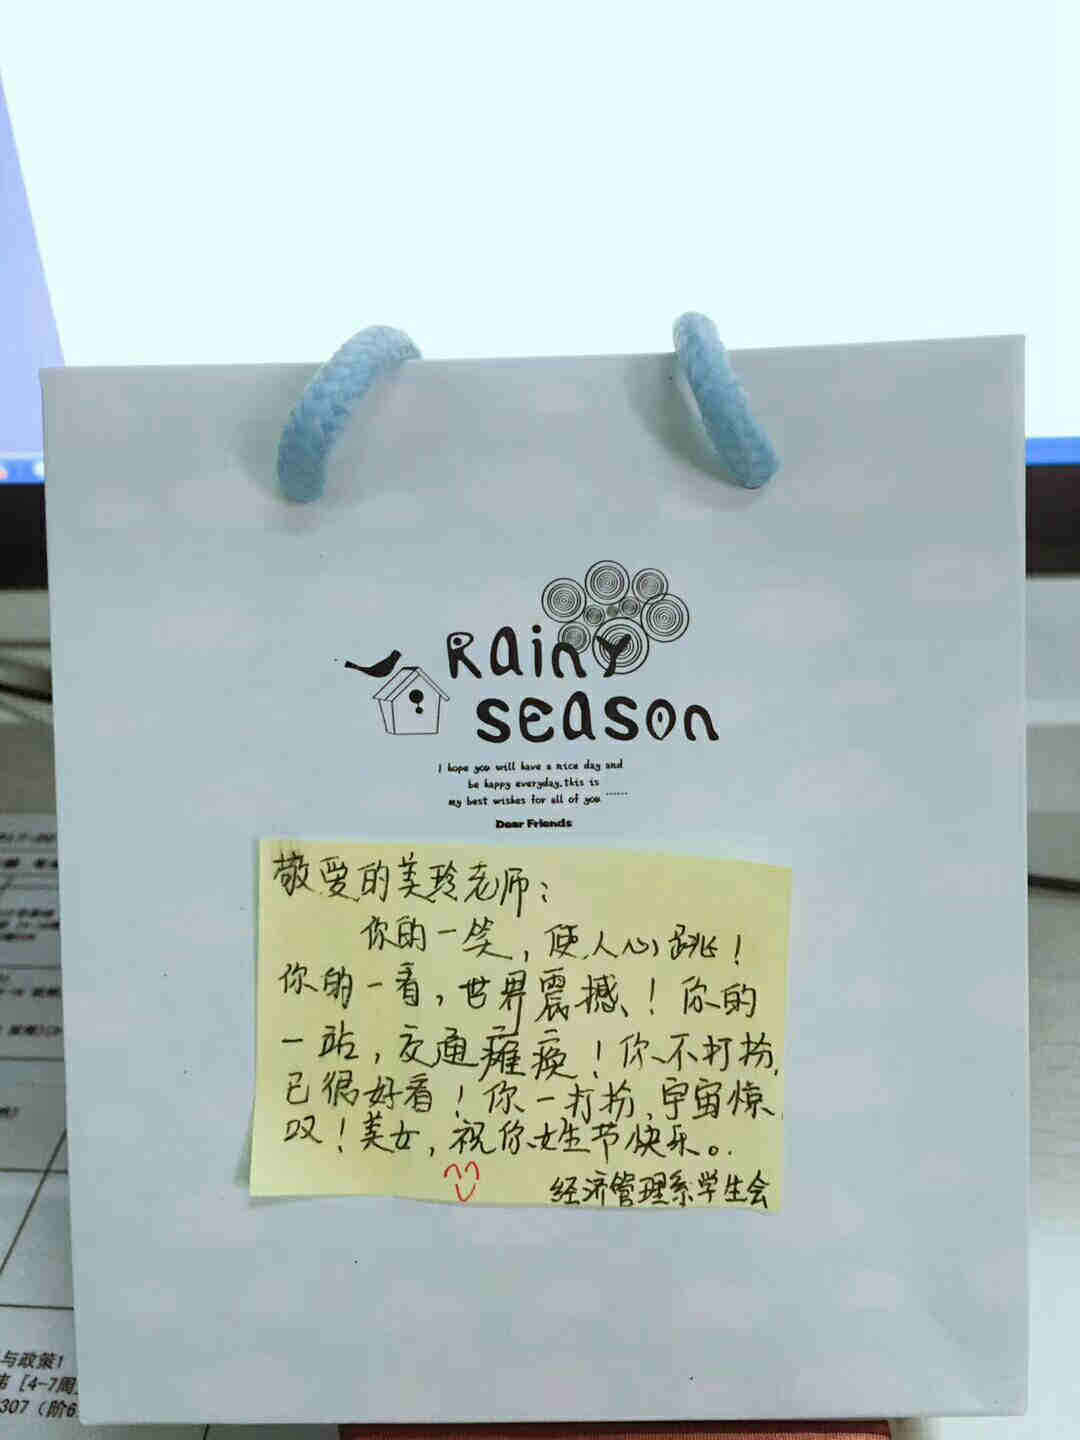 Rainy
season
I hope you will have a nice day and
be happy everyday.this is
my best wishes for all of you ......
Dear Friends
敬爱的美玲老师：
你的一笑，使人心跳！
你的一看，世界震撼！你的
一站，交通瘫痪！你不打扮，
已很好看！你一打扮，宇宙惊
叹！美女，祝你女生节快乐。
经济管理系学生会
与政策1
[4-7周
307（阶6